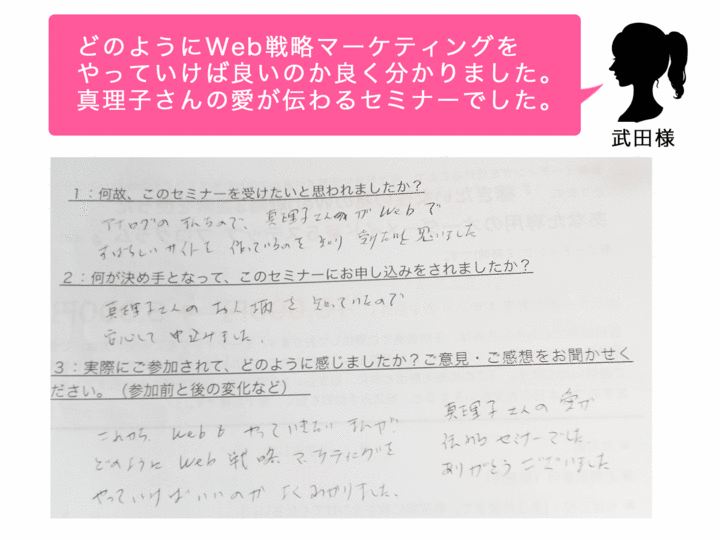 どのようにWeb戦略マーケティングを
やっていけば良いのか良く分かりました。
真理子さんの愛が伝わるセミナーでした。
武田様
1：何故、このセミナーを受けたいと思われましたか？
アナログの私なので、真理子さんがWebで
すばらしいサイトを作っているのを知り 受けたいと思いました
2：何が決め手となって、このセミナーにお申し込みをされましたか？
真理子さんのお人柄を知っていたので
安心して申込みました。
3：実際にご参加されて、どのように感じましたか？ご意見・ご感想をお聞かせく
ださい。（参加前と後の変化など）
これから、Webもやっていきたいですが、
どのようにWeb戦略マーケティングを
やっていけばいいのか よくわかりました、
真理子さんの愛が
伝わるセミナーでした
ありがとうございました